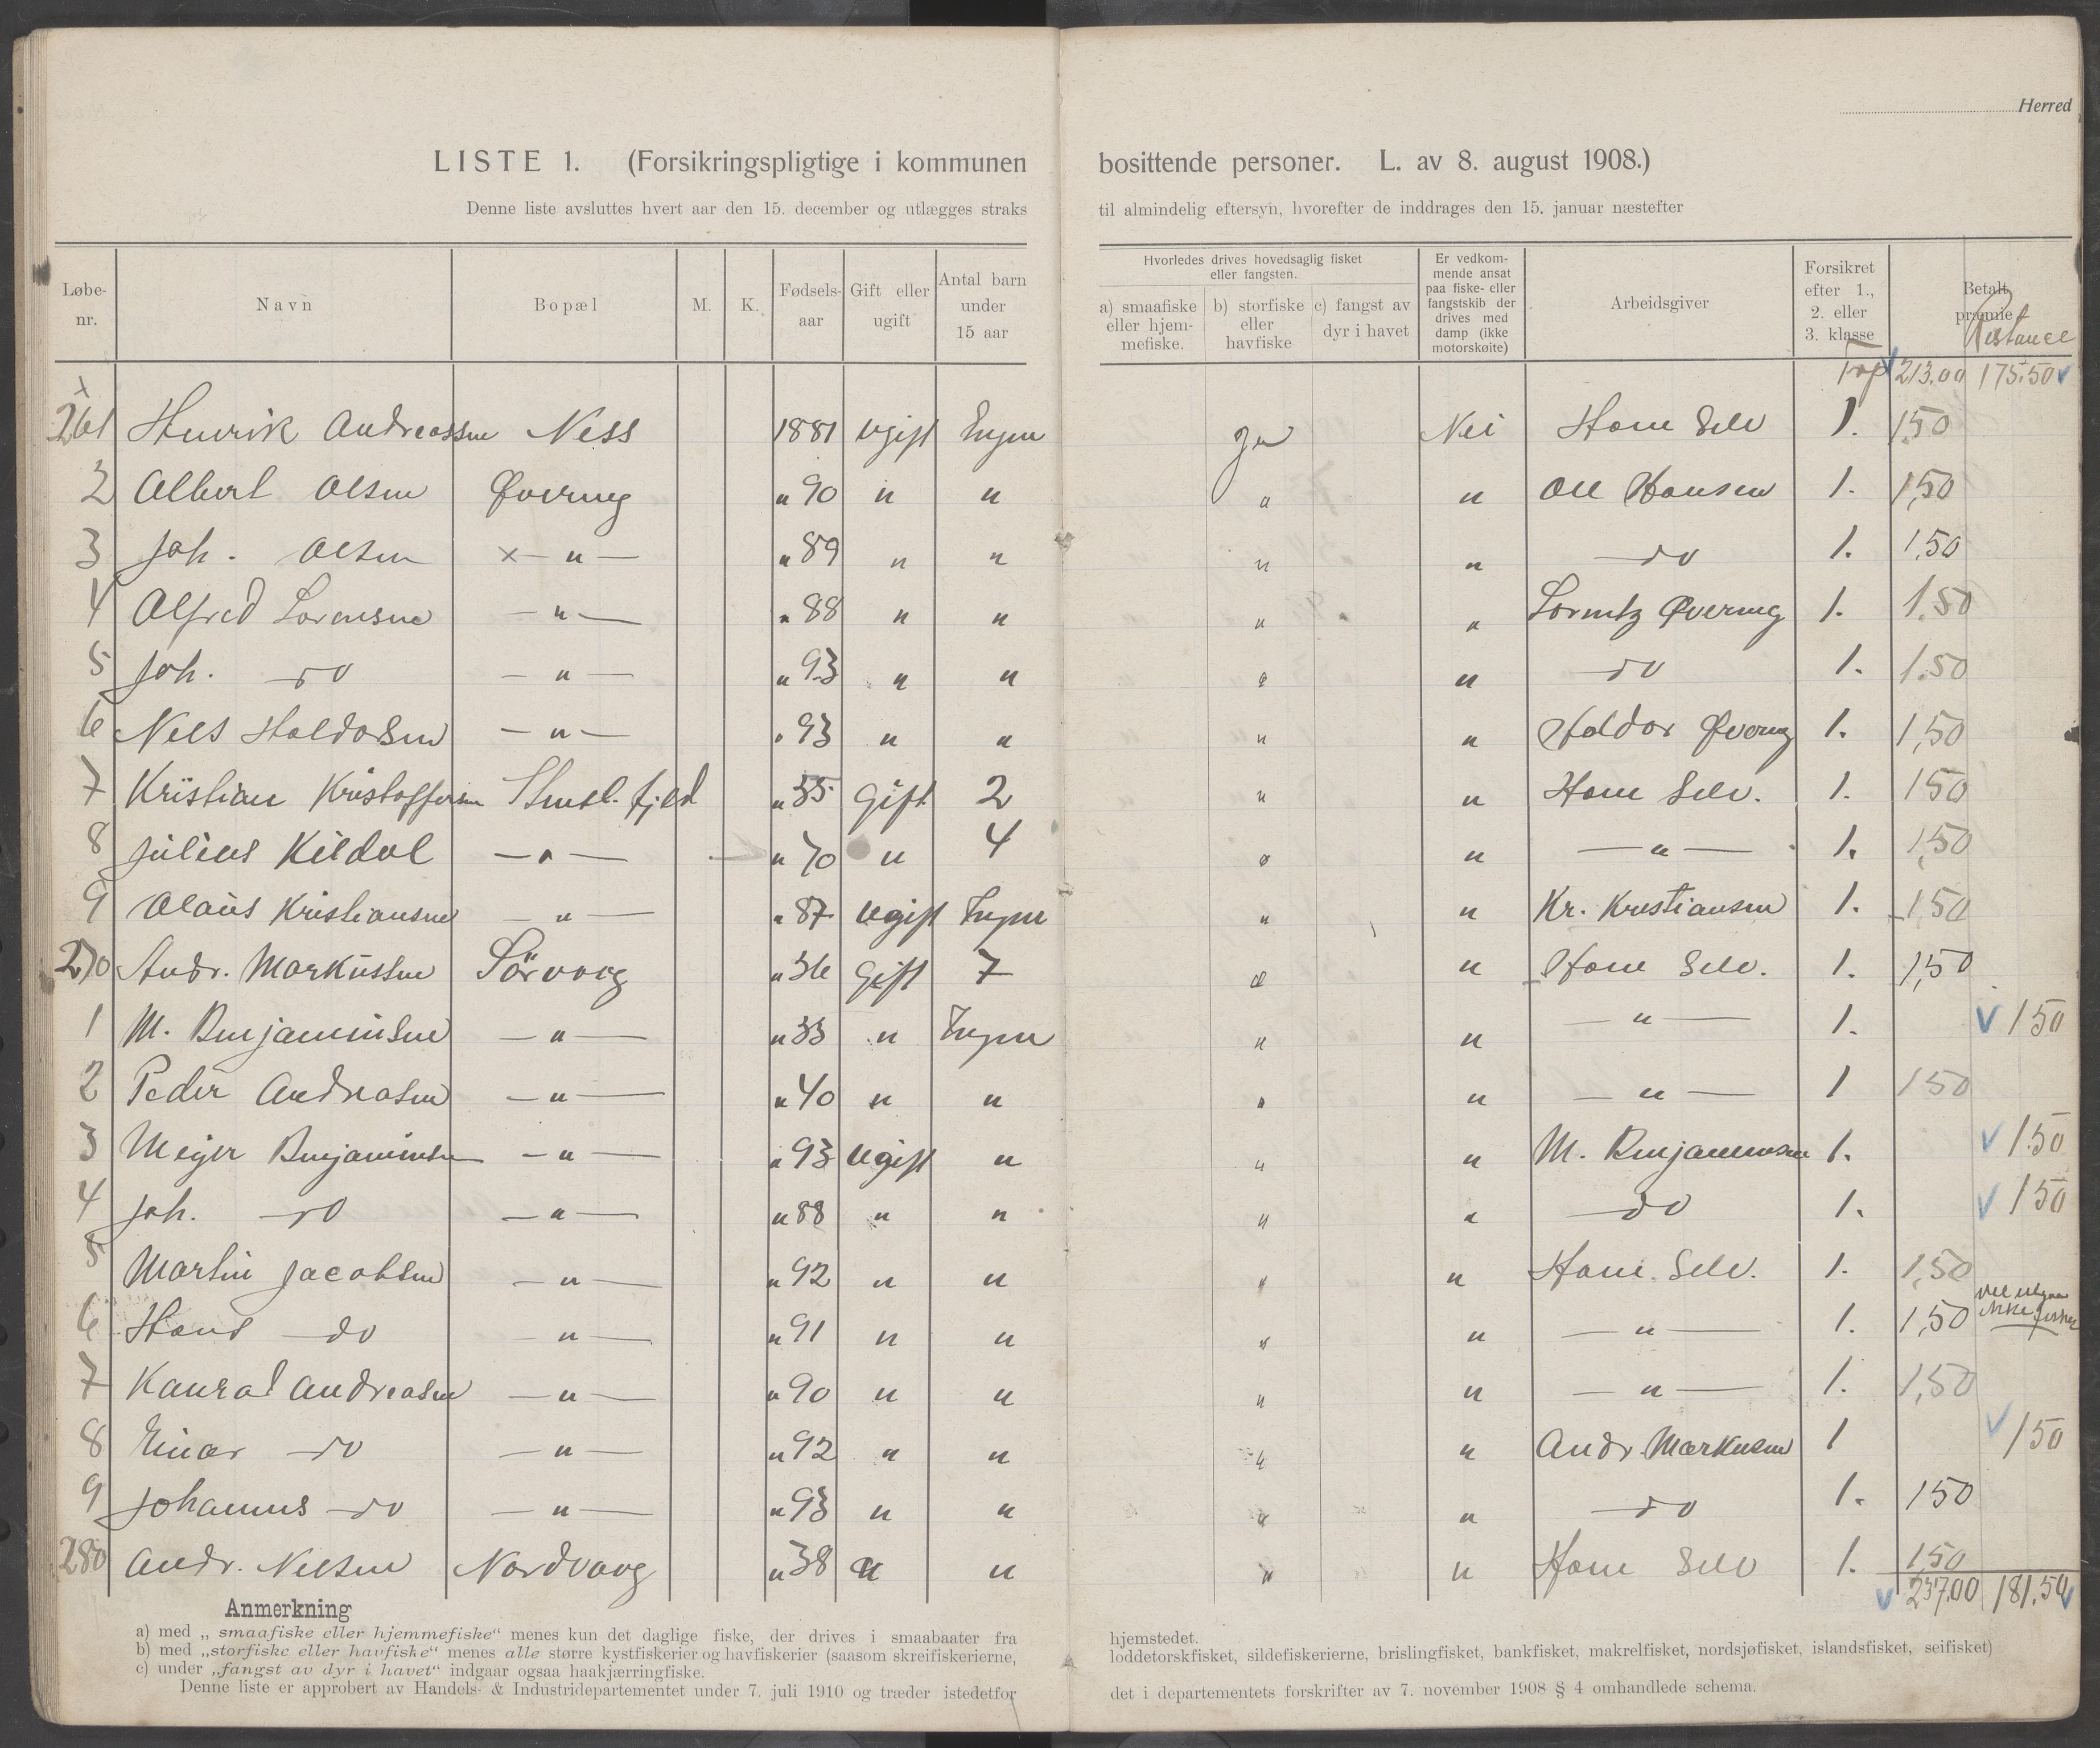 Herred
LISTE 1. (Forsikringspligtige i kommunen bosittende personer. L. av 8. august 1908.)
Denne liste avsluttes hvert aar den 15. december og utlægges straks til almindelig eftersyn, hvorefter de inddrages den 15. januar næstefter
Løbe-nr. Navn Bopæl M. K. Fødsels-aar Gift eller ugift Antal barn under 15 aar Hvorledes drives hovedsaglig fisket eller fangsten. a) smaafiske eller hjemmefiske. b) storfiske eller havfiske c) fangst av dyr i havet Er vedkommende ansat paa fiske- eller fangstskib der drives med damp (ikke motorskøite) Arbeidsgiver Forsikret efter 1., 2. eller 3. klasse Betalt præmie Restance
213.00 175.50
261 Henrik Andreassen Ness 1881 ugift Ingen Ja Nei Hane Selv 1. 1,50
2 Albert Olsen Øvereng " 90 " " " " Ole Hansen 1. 1,50
3 Joh. Olsen × — " — " 89 " " " " do 1. 1,50
4 Alfred Lorensen — " — " 88 " " " " Lorentz Øvereng 1. 1.50
5 Joh. do — " — " 93 " " " " do 1. 1.50
6 Nils Haldorsen — " — " 93 " " " " Haldor Øvereng 1. 1,50
7 Kristian Kristoffersen fjeld " 35 Gift 2 " " Hane Selv. 1. 150
8 Julius Kildal — " — " 70 " 4 " " — " — 1. 1,50
9 Olaus Kristiansen — " — " 87 ugift Ingen " " Kr. Kristiansen 1. 1,50
270 Andr. Markussen Sörvaag " 36 Gift 7 " " Hane Selv. 1. 1,50
1 M. Benjaminsen — " — " 33 " Ingen " " — " — 1. 150
2 Peder Andreasen — " — " 40 " " " " — " — 1 150
3 Meyer Benjaminsen — " — " 93 ugift " " " M. Benjaminsen 1. 1.50
4 Joh. do — " — " 88 " " " " do 1. 150
5 Martin Jacobsen — " — " 92 " " " " Hane Selv. 1. 1,50
6 Hans do — " — " 91 " " " " — " — 1. 1,50 ikke fisker
7 Konrad Andreasen — " — " 90 " " " " — " — 1. 1,50
8 Einar do — " — " 92 " " " " Andr. Markusen 1 150
9 Johannes do — " — " 93 " " " " do 1. 150
280 Andr. Nilsen Nordvaag " 38 " " " " Hane Selv 1. 1,50
237.00 181.50
Anmerkning
a) med „smaafiske eller hjemmefiske“ menes kun det daglige fiske, der drives i smaabaater fra hjemstedet.
b) med „storfiske eller havfiske“ menes alle større kystfiskerier og havfiskerier (saasom skreifiskerierne, loddetorskfisket, sildefiskerierne, brislingfisket, bankfisket, makrelfisket, nordsjøfisket, islandsfisket, seifisket)
c) under „fangst av dyr i havet“ indgaar ogsaa haakjærringfiske.
Denne liste er approbert av Handels- & Industridepartementet under 7. juli 1910 og træder istedetfor det i departementets forskrifter av 7. november 1908 § 4 omhandlede schema.